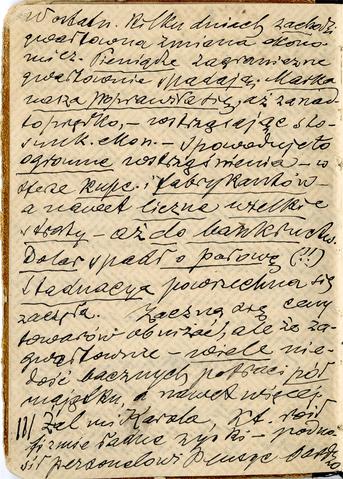 W ostatn. kilku dniach zachodzi
gwałtowna zmiana ekono-
micz. Pieniądze zagraniczne
gwałtownie spadają. Marka
nasza poprawiła się, aż zanad-
to prędko, – wstrząsając sto-
sunk. ekon. – spowoduje to
ogromne wstrząśnienia – w
sferze kupc. i fabrykantów –
a nawet liczne wielkie
straty – aż do bankructw.
Dolar spadł o połowę (!!)
Stagnacya powszechna się
zaczęła. Zaczną się ceny
towarów obniżać, ale że za-
gwałtownie – wiele nie-
dość bacznych potraci pół
majątku, a nawet więcej
Żal mi Karola, kt. robił
firmie ładne zyski – podno-
sił personelowi pensye bardzo